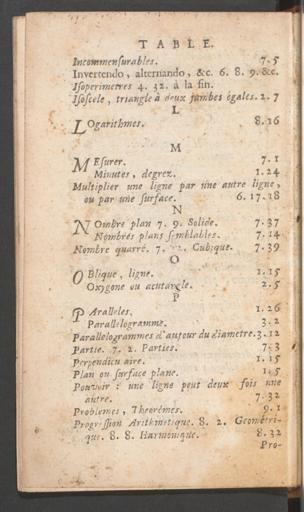 TABLE.
Incommenſurables. 7.5
Invertendo, alternando, &c. 6. 8. 9. &c.
Iſoperimetres 4. 32. à la fin.
Iſoſcele, triangle à deux jambes égales. 2. 7
L
Logarithmes. 8.16
M
MEſurer. 7.1
Minutes, degrez. 1.24
Multiplier une ligne par une autre ligne,
ou par une ſurface. 6.17.18
N
NOmbre plan 7. 9. Solide. 7.37
Nombres plans ſemblables. 7.14
Nombre quarré. 7. Cubique. 7.39
O
OBlique, ligne. 1.15
Oxygone ou acutangle. 2.5
P
PAralleles. 1.26
Parallelogramme. 3.2
Parallelogrammes d'autour du diametre. 3.12
Partie. 7. 2. Parties. 7.3
Perpendicu aire. 1.15
Plan ou ſurface plane. 1.5
Pouvoir : une ligne peut deux fois une
autre. 7.32
Problemes, Theorémes. 9.1
Progreſſion Arithmetique. 8. 2. Geometri-
que. 8. 8. Harmonique. 8.32
Pro-